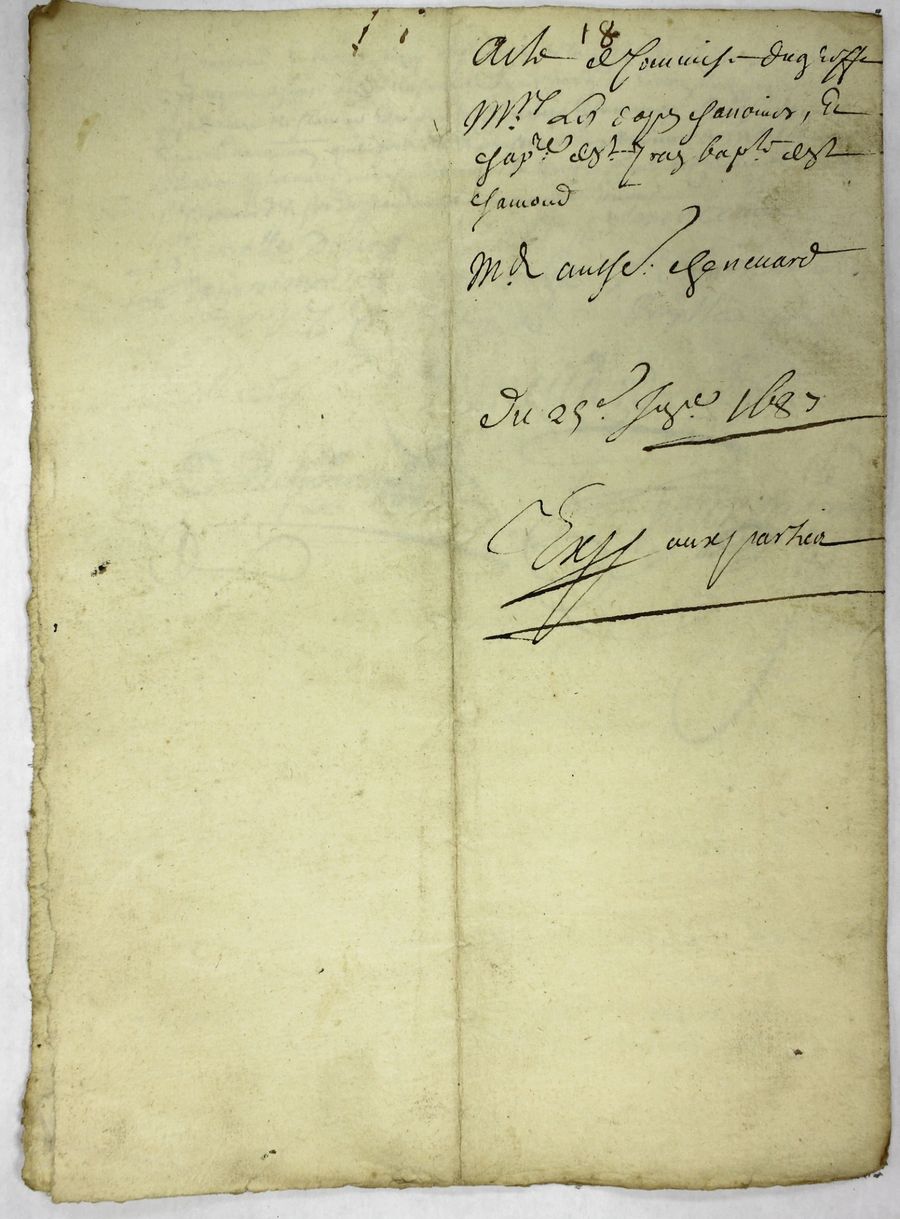 18
Acte de Commise du greffe
Mrs Les doyen chanoines, Et
chapre de St Jean bapte de St
chamond
Mr anthe: chenevard
Du 25e 1687
Exp aux parties